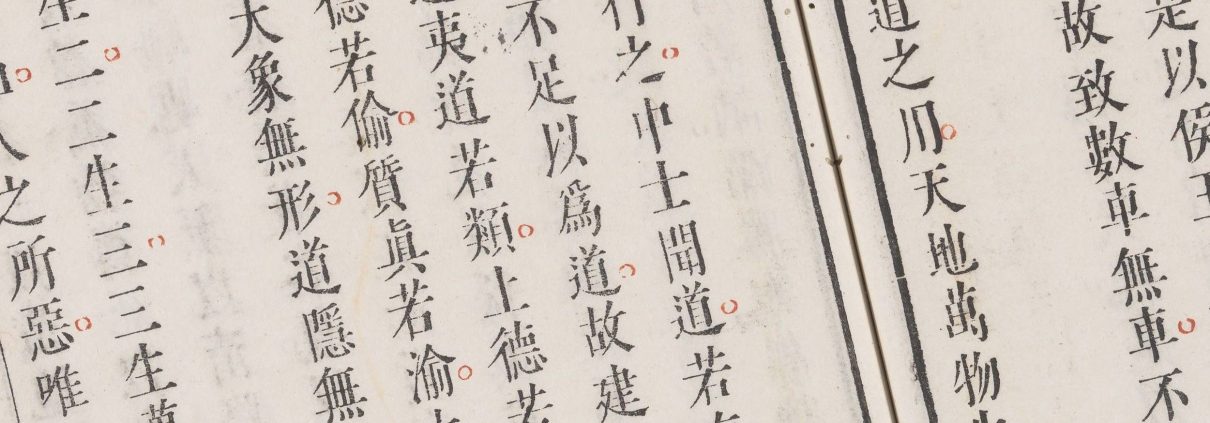 以侯王
故致數車無車不
道之用天地萬物
行之中士聞道若
不足以爲道故建
夷道若類上德若
德若偷質眞若渝
大象無形道隱無
生二二生三三生萬
人之所惡唯